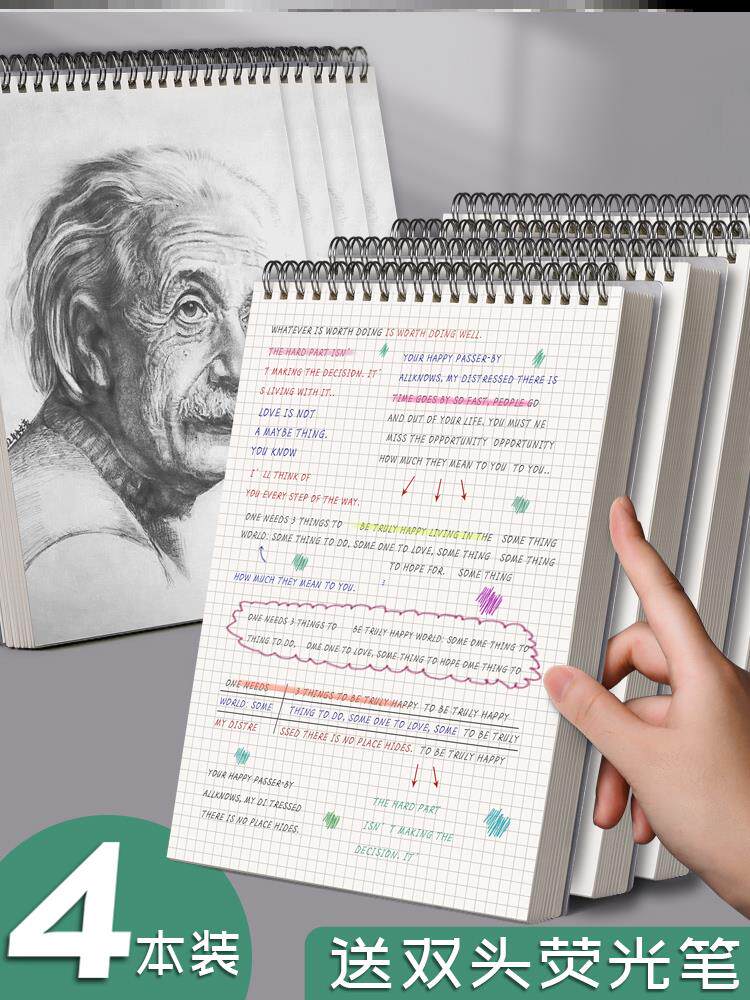 WHATEVER IS WORTH DOING IS WORTH DOING WELL.
THE HARD PART ISN'
T MAKING THE DECISION. IT'
S LIVING WITH IT..
LOVE IS NOT
A MAYBE THING.
YOU KNOW
I' LL THINK OF
YOU EVERY STEP OF THE WAY.
YOUR HAPPY PASSER-BY
ALLKNOWS, MY DISTRESSED THERE IS
TIME GOES BY SO FAST, PEOPLE GO
AND OUT OF YOUR LIFE. YOU MUST NE
MISS THE OPPORTUNITY OPPORTUNITY
HOW MUCH THEY MEAN TO YOU TO YOU..
ONE NEEDS 3 THINGS TO BE TRULY HAPPY LIVING IN THE SOME THING
WORLD: SOME THING TO DO, SOME ONE TO LOVE, SOME THING SOME THING
TO HOPE FOR. SOME THING
HOW MUCH THEY MEAN TO YOU. 3
ONE NEEDS 3 THINGS TO BE TRULY HAPPY WORLD: SOME OME THING TO
THING TO DO, OME ONE TO LOVE, SOME THING TO HOPE OME THING TO
ONE NEEDS 3 THINGS TO BE TRULY HAPPY TO BE TRULY HAPPY
WORLD: SOME THING TO DO, SOME ONE TO LOVE, SOME TO BE TRULY
MY DISTRE SSED THERE IS NO PLACE HIDES. TO BE TRULY HAPPY
YOUR HAPPY PASSER-BY
ALLKNOWS, MY DI TRESSED
THERE IS NO PLACE HIDES.
THE HARD PART
ISN' T MAKING THE
DECISION. IT'
4本装
送双头荧光笔